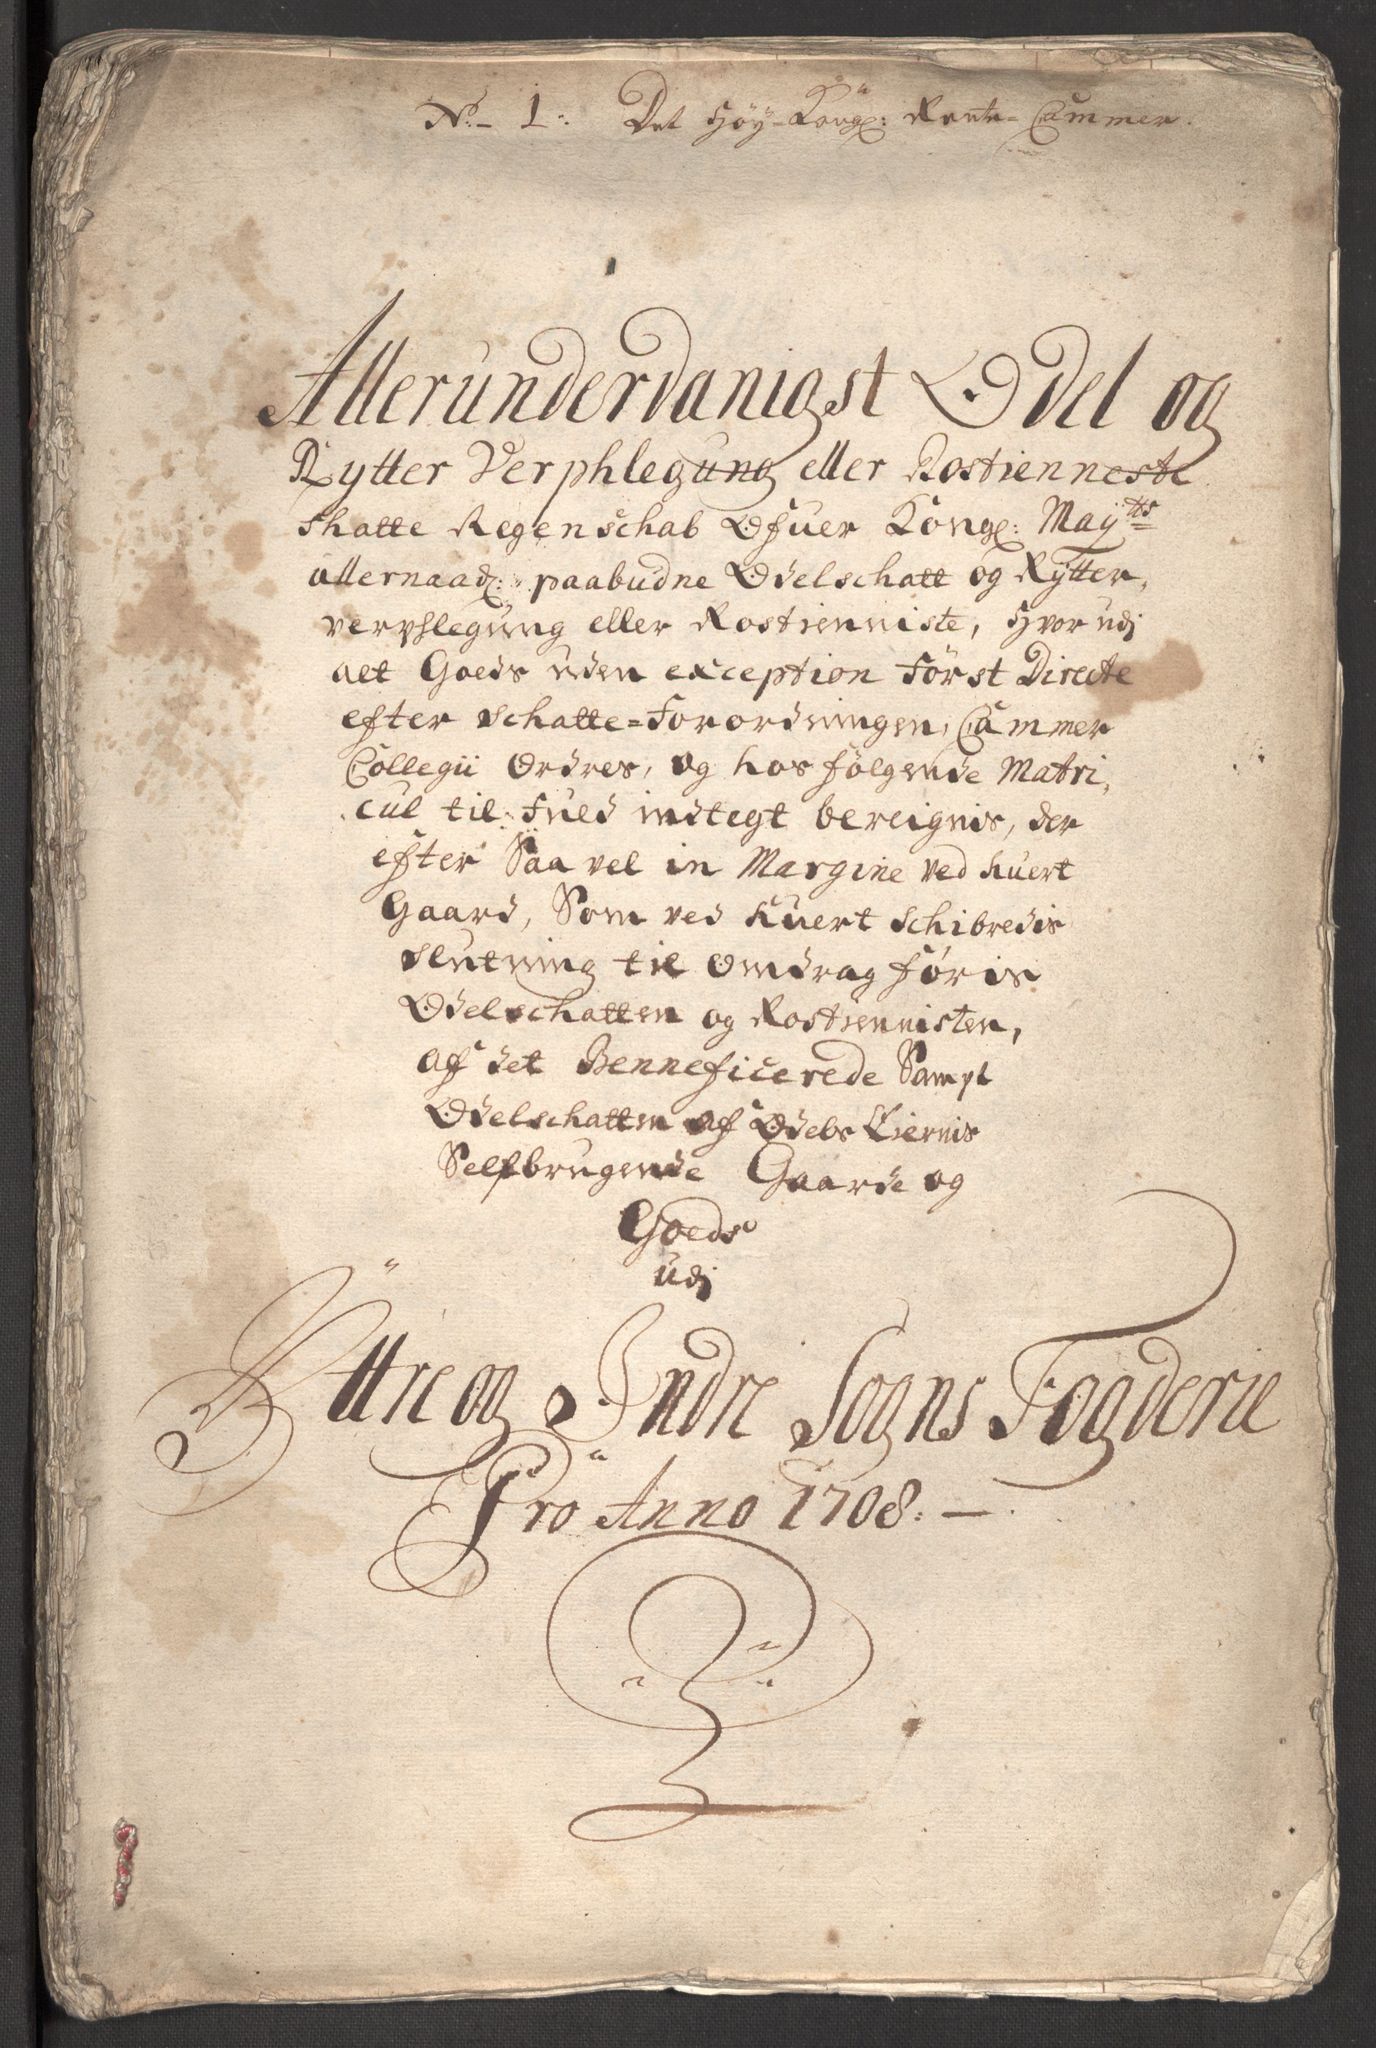 No. 1. Det Höy-Kongl: Rente-Cammer.
Allerunderdanigst Odel og
Rytter Verphlegung eller Rostienneste
skatte Regenschab Ofuer Kongl: Mayts
allernaad: paabudne Odelschatt og Rytter,
verphlegung eller Rostienniste, hvor udj
alt Goeds uden exception först Directe
efter Schatte-Forordningen, Cammer
Collegii Ordres, og hos fölgende Matri,
cul til fuld indtegt bereignis, der
efter Saa vel in Margine ved huert
Gaard, Som ved huert Schibredis
slutning til Omdrag föris
Odelschatten og Rostiennisten,
af det Benneficerede Sampt
Odelschatten af Odels Eiernis
Selfbrugende Gaarde og
Goeds
udj
Yttre og Indre Sogns Fogderie
Pro Anno 1708. —